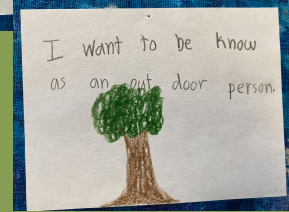 I want to be know
as an out door person.